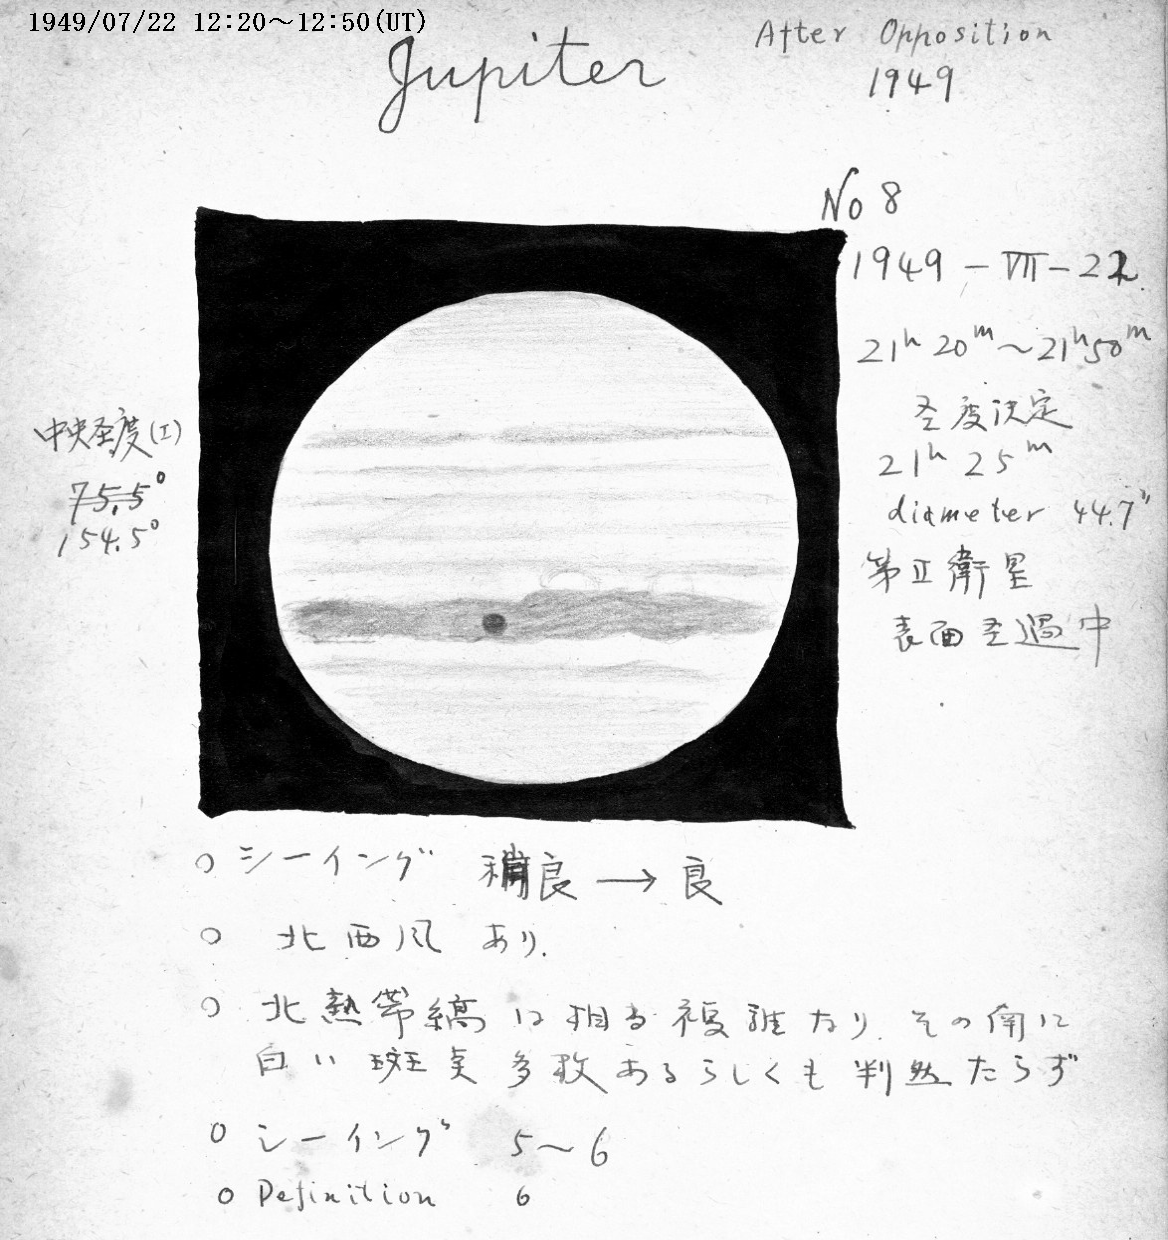 1949/07/22 12:20～12:50(UT)
Jupiter
After Opposition
1949
No 8
1949 - VII - 22.
21h 20m ～ 21h 50m
圣度決定
21h 25m
diameter 44.7"
第II衛星
表面圣過中
中央圣度(I)
75.5°
154.5°
○ シーイング 稍良 → 良
○ 北西風 あり.
○ 北熱帯縞は相当複雑なり. その南に
白い斑点多数あるらしくも判然たらず
○ シーイング 5～6
○ Definition 6